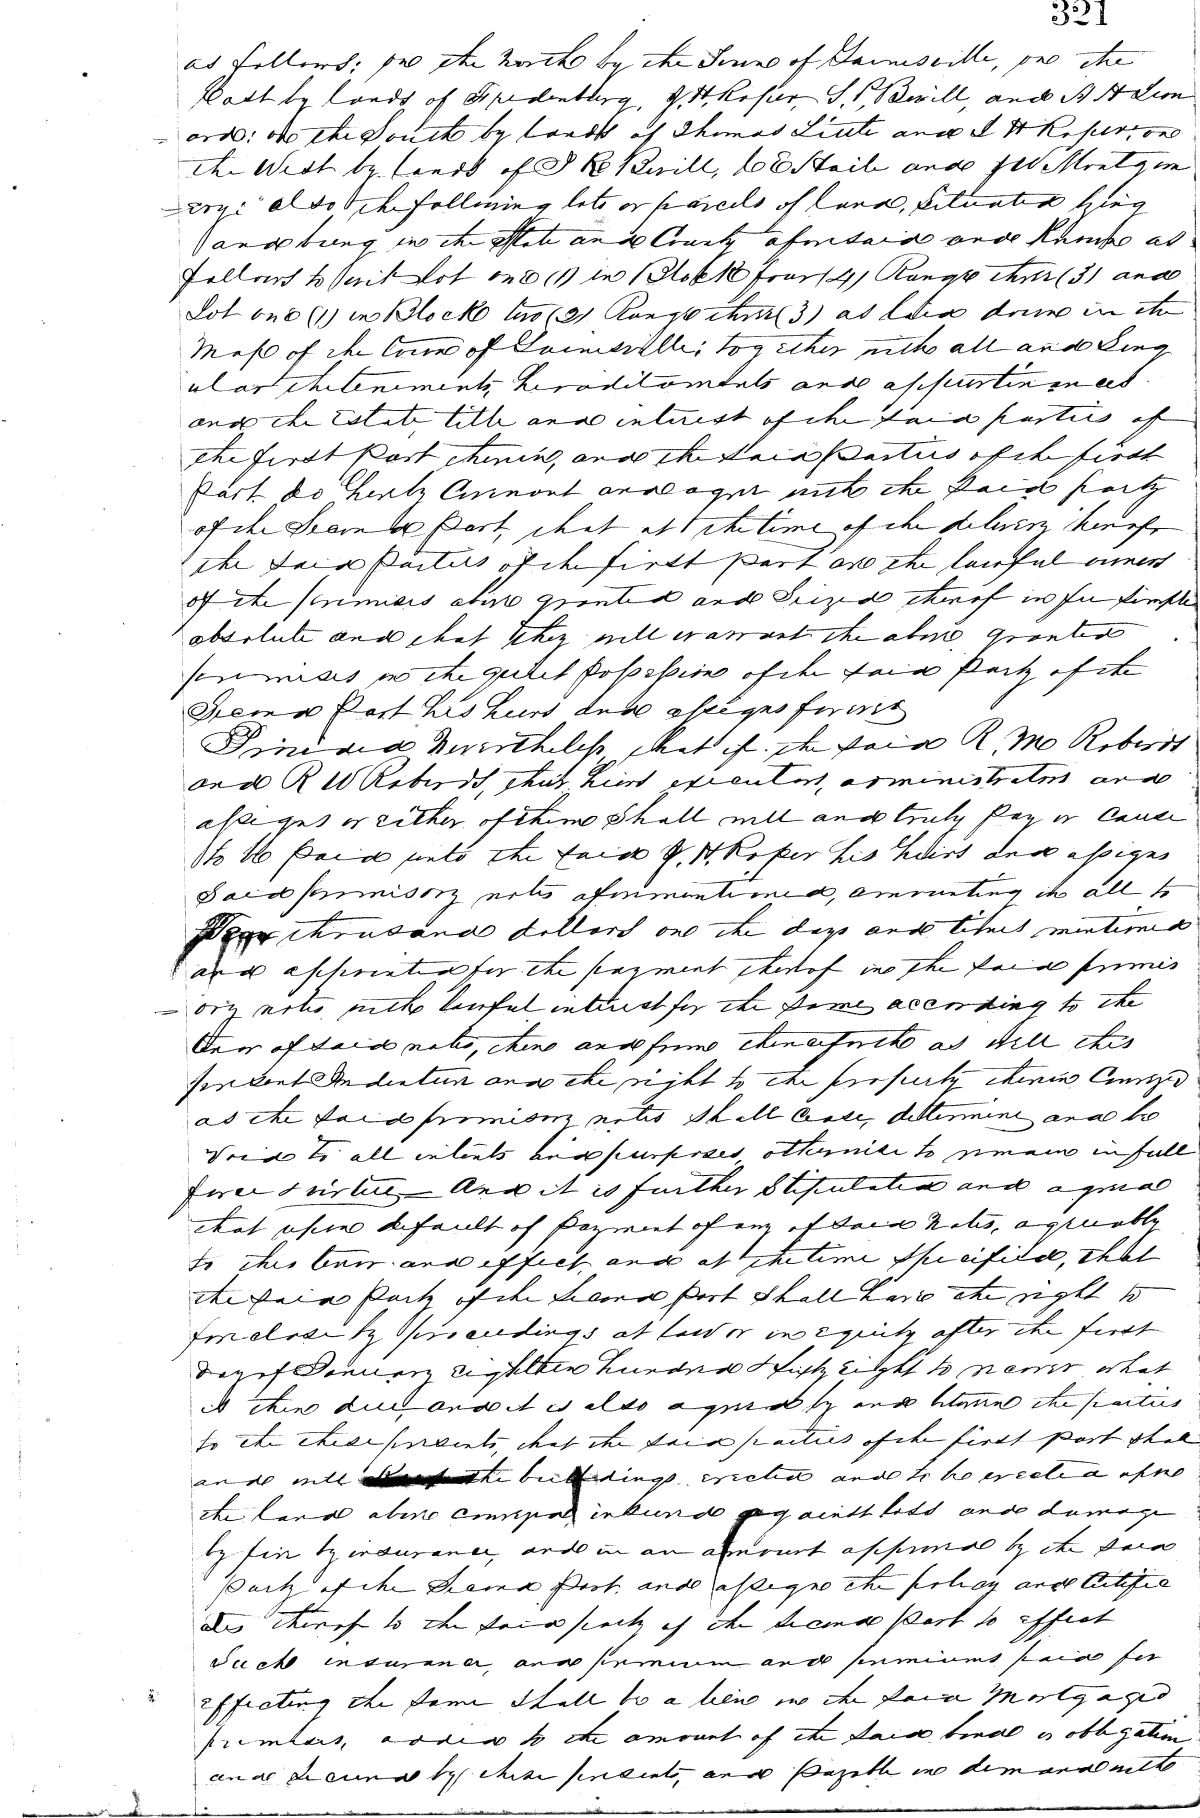 321
as follows: on the North by the Town of Gainesville, on the
East by lands of Fredenburg, J. H. Roper, S. P. Bevill, and A H Leon
ard: on the South by lands of Thomas Little and J H Roper; on
the West by lands of J R Bevill, C E Haile and J W Montgom
=ery: also the following lots or parcels of land, situated lying
and being in the State and County aforesaid and Known as
follows to wit Lot one (1) in Block four (4) Range three (3) and
Lot one (1) in Block two (2) Range three (3) as laid down in the
Map of the town of Gainesville; together with all and Sing
ular the tenements, hereditaments and appurtinances
and the Estate, title and interest of the said parties of
the first Part therein, and the said Parties of the first
Part do hereby Covenant and agree with the said party
of the Second Part, that at the time of the delivery hereof
the said Parties of the first part are the lawful owners
of the premises above granted and Seized thereof in fee simple
absolute and that they will warrant the above granted
premises in the quiet Possession of the said Party of the
Second Part his heirs and assigns forever
Provided Nevertheless, that if the said R. M Roberds
and R W Roberds, their heirs executors, administrators and
assigns or either of them shall well and truly Pay or Cause
to be Paid unto the said J. H. Roper his heirs and assigns
said promisory notes aforementioned, amounting in all to
thousand dollars on the days and times mentioned
and appointed for the payment thereof in the said promis
=ory notes with lawful interest for the same according to the
tenor of said notes, then and from thenceforth as well this
present Indenture and the right to the property therein Conveyed
as the said promisory notes shall Cease, determine and be
Void to all intents and purposes, otherwise to remain in full
force & virtue - And it is further Stipulated and agreed
that upon default of Payment of any of said Notes, agreeably
to this tenor and effect, and at the time specified, that
the said Party of the Second Part Shall have the right to
foreclose by proceedings at law or in equity after the first
day of January eighteen hundred & sixty eight to recover what
is then due, and it is also agreed by and between the parties
to the these presents, that the said parties of the first part shall
and will the buildings erected and to be erected upon
the land above conveyed, insured against loss and damage
by fire by insurance, and in an amount approved by the said
Party of the Second Part. and assign the policy and Certific
ates thereof to the said party of the second part to effect
Such insurance, and premium and premiums paid for
effecting the same shall be a lien on the said Mortgaged
premises, added to the amount of the said bond or obligation
and secured by these presents, and payable on demand with